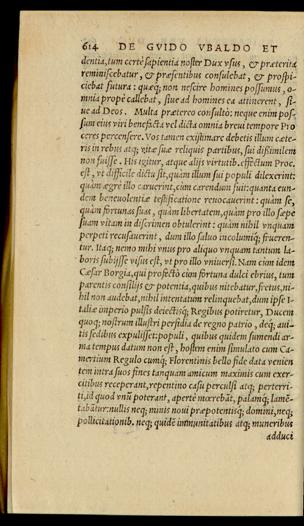 614 DE GVIDO VBALDO ET
dentia, tum certè sapientia noster Dux vsus, & præterita
reminiscebatur, & præsentibus consulebat, & prospi-
ciebat futura: quæq; non nescire homines possumus, o-
mnia propè callebat, siue ad homines ea attinerent, si-
ue ad Deos. Multa prætereo consultò: neque enim pos-
sum eius viri benefacta vel dicta omnia breui tempore Pro
ceres percensere. Vos tamen existimare debetis illum cæte-
ris in rebus atq; vitæ suæ reliquis partibus, sui dissimilem
non fuisse. His igitur, atque alijs virtutib. effectum Proc.
est, vt difficile dictu sit, quàm illum sui populi dilexerint:
quàm ægrè illo caruerint, cùm carendum fuit: quanta eun-
dem beneuolentiæ testificatione reuocauerint: quàm se,
quàm fortunas suas, quàm libertatem, quàm pro illo sæpe
suam vitam in discrimen obtulerint: quàm nihil vnquam
perpeti recusauerint, dum illo saluo incolumíq; frueren-
tur. Itaq; nemo mihi vnus pro aliquo vnquam tantum la-
boris subijsse visus est, vt pro illo vniuersi. Nam cion idem
Cæsar Borgia, qui profectò cion fortuna dulci ebrius, tum
parentis consilijs & potentia, quibus nitebatur, fretus, ni-
hil non audebat, nihil intentatum relinquebat, dum ipse I-
taliæ imperio pulsis deiectisq; Regibus potiretur, Ducem
quoq; nostrum illustri perfidia de regno patrio, deq; aui-
tis sedibus expulisset: populi, quibus quidem sumendi ar-
ma tempus datum non est, hostem enim simulato cum Ca-
mertium Regulo cumq; Florentinis bello fide data venien
tem intra suos fines tanquam amicum maximis cum exer-
citibus receperant, repentino casu perculsi atq; perterri-
ti, id quod vnū poterant, apertè mœrebāt, palamq; lamē-
tabātur: nullis neq; minis noui præpotentisq; domini, neq;
pollicitationib. neq; quidē immunitatibus atq; muneribus
adduci